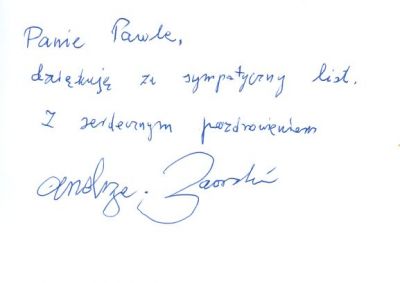 Panie Pawle,
dziękuję za sympatyczny list.
Z serdecznym pozdrowieniem
Andrzej Zaorski